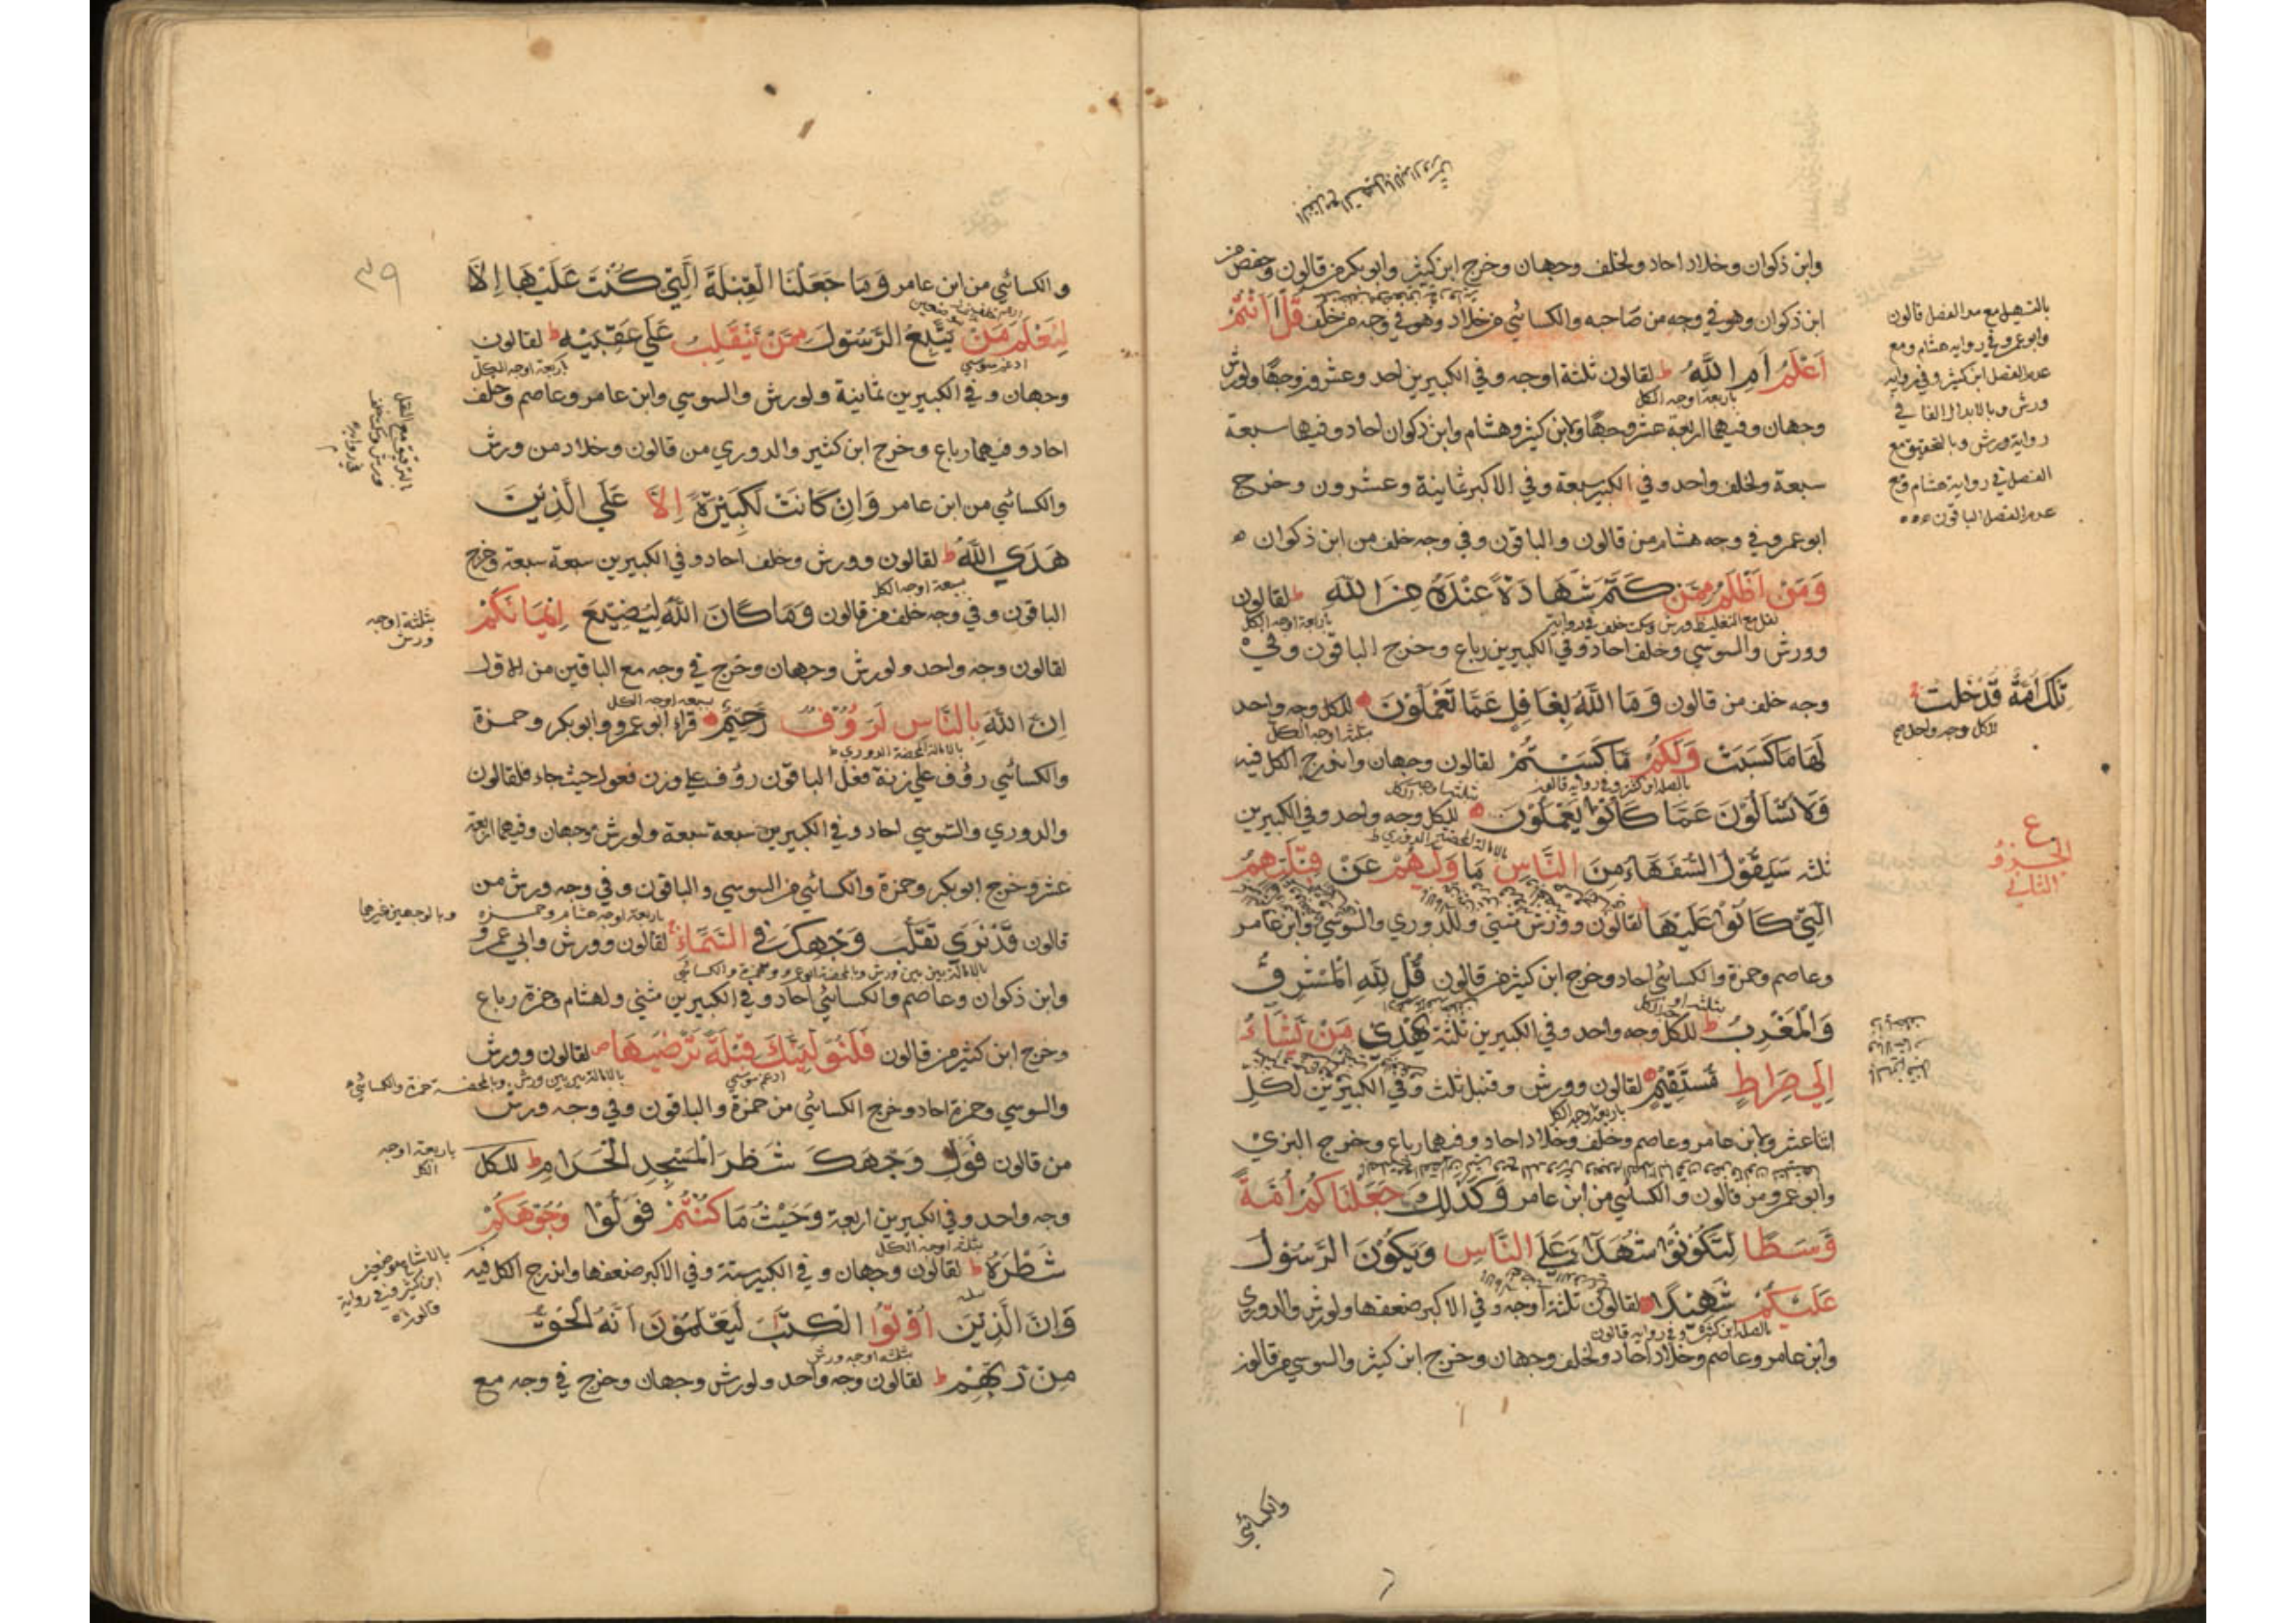 وابن ذكوان وخلاد احاد ولخلف وجهان وخرج ابن كثير وابو بكر من قالون وحفص من
ابن ذكوان وهو في وجه من صاحبه والكسائي من خلاد وهو في وجه من خلف قُلْ اَاَنْتُمْ
اَعْلَمُ اَمِ اللَّهُ ط لقالون ثلثة اوجه وفي الكبيرين احد وعشرون وجها ولورش
باربعة اوجه الكل
وجهان وفيهما اربعة عشر وجها ولابن كثير وهشام وابن ذكوان احاد وفيها سبعة
سبعة ولخلف واحد وفي الكبير سبعة وفي الاكبر ثمانية وعشرون وخرج
ابو عمرو في وجه هشام من قالون والباقون وفي وجه خلف من ابن ذكوان ه
وَمَنْ اَظْلَمُ مِمَّنْ كَتَمَ شَهَادَةً عِنْدَهُ مِنَ اللَّهِ ط لقالون
باربعة اوجه الكل
وورش والسوسي وخلف احاد وفي الكبيرين رباع وخرج الباقون وفي
وجه خلف من قالون وَمَا اللَّهُ بِغَافِلٍ عَمَّا تَعْمَلُوْنَ للكل وجه واحد
بثلثة اوجه الكل
لَهَا مَا كَسَبَتْ وَلَكُمْ مَا كَسَبْتُمْ لقالون وجهان واندرج الكل فيه
بالصلة ابن كثير وفي رواية قالون
وَلَا تُسْاَلُوْنَ عَمَّا كَانُوْا يَعْمَلُوْنَ للكل وجه واحد وفي الكبيرين
ثلثه سَيَقُوْلُ السُّفَهَاءُ مِنَ النَّاسِ مَا وَلّٰىهُمْ عَنْ قِبْلَتِهِمُ
الَّتِيْ كَانُوْا عَلَيْهَا لقالون وورش مثنى وللدوري والسوسي وابن عامر
وعاصم وحمزة والكسائي احاد وخرج ابن كثير من قالون قُلْ لِلّٰهِ الْمَشْرِقُ
وَالْمَغْرِبُ ط للكل وجه واحد وفي الكبيرين ثلثة يَهْدِيْ مَنْ يَشَاءُ
اِلٰي صِرَاطٍ مُسْتَقِيْمٍ لقالون وورش وقنبل ثلث وفي الكبيرين لكل
باربعة اوجه الكل
اثنا عشر ولابن عامر وعاصم وخلف وخلاد احاد وفيهما رباع وخرج البزي
وابو عمرو من قالون والكسائي من ابن عامر وَكَذٰلِكَ جَعَلْنَاكُمْ اُمَّةً
وَسَطًا لِتَكُوْنُوْا شُهَدَاءَ عَلَي النَّاسِ وَيَكُوْنَ الرَّسُوْلُ
عَلَيْكُمْ شَهِيْدًا لقالون ثلثة اوجه وفي الاكبر ضعفها ولورش والدوري
بالصلة ابن كثير وفي رواية قالون
وابن عامر وعاصم وخلاد احاد ولخلف وجهان وخرج ابن كثير والسوسي من قالون
والكسائي
بالتسهيل مع مد الفصل قالون
وابو عمرو وفي رواية هشام ومع
عدم الفصل ابن كثير وفي رواية
ورش وبالابدال الفا في
رواية ورش وبالتحقيق مع
الفصل في رواية هشام ومع
عدم الفصل الباقون
تِلْكَ اُمَّةٌ قَدْ خَلَتْ
للكل وجه واحد صح
ع
الجزو
الثاني
٣٩
والكسائي من ابن عامر وَمَا جَعَلْنَا الْقِبْلَةَ الَّتِيْ كُنْتَ عَلَيْهَا اِلَّا
لِنَعْلَمَ مَنْ يَتَّبِعُ الرَّسُوْلَ مِمَّنْ يَنْقَلِبُ عَلٰي عَقِبَيْهِ ط لقالون
ادغم سوسي باربعة اوجه الكل
وجهان وفي الكبيرين ثمانية ولورش والسوسي وابن عامر وعاصم وخلف
احاد وفيهما رباع وخرج ابن كثير والدوري من قالون وخلاد من ورش
والكسائي من ابن عامر وَاِنْ كَانَتْ لَكَبِيْرَةً اِلَّا عَلَي الَّذِيْنَ
هَدَي اللّٰهُ ط لقالون وورش وخلف احاد وفي الكبيرين سبعة سبعة وخرج
بسبعة اوجه الكل
الباقون وفي وجه خلف من قالون وَمَا كَانَ اللّٰهُ لِيُضِيْعَ اِيْمَانَكُمْ
لقالون وجه واحد ولورش وجهان وخرج في وجه مع الباقين من الاول
بسبعة اوجه الكل
اِنَّ اللّٰهَ بِالنَّاسِ لَرَءُوْفٌ رَحِيْمٌ قراء ابو عمرو وابو بكر وحمزة
بالامالة المحضة الدوري ط
والكسائي رؤف علي زنة فعل الباقون رؤف علي وزن فعول حيث جاء فلقالون
والدوري والسوسي احاد وفي الكبيرين سبعة سبعة ولورش وجهان وفيهما اربعة
عشر وخرج ابو بكر وحمزة والكسائي من السوسي والباقون وفي وجه ورش من
باربعة اوجه هشام وحمزه
قالون قَدْ نَرٰي تَقَلُّبَ وَجْهِكَ فِي السَّمَاءِ لقالون وورش وابي عمرو
بالامالة بين بين ورش وبالمحضة ابو عمرو وحمزة والكسائي
وابن ذكوان وعاصم والكسائي احاد وفي الكبيرين مثني ولهشام وحمزة رباع
وخرج ابن كثير من قالون فَلَنُوَلِّيَنَّكَ قِبْلَةً تَرْضٰىهَا لقالون وورش
ادغم سوسي بالامالة بين بين ورش وبالمحضة حمزة والكسائي
والسوسي وحمزة احاد وخرج الكسائي من حمزة والباقون وفي وجه ورش
من قالون فَوَلِّ وَجْهَكَ شَطْرَ الْمَسْجِدِ الْحَرَامِ ط للكل
وجه واحد وفي الكبيرين اربعة وَحَيْثُ مَا كُنْتُمْ فَوَلُّوْا وُجُوْهَكُمْ
بثلثة اوجه الكل
شَطْرَهُ ط لقالون وجهان وفي الكبير ستة وفي الاكبر ضعفها واندرج الكل فيه
وَاِنَّ الَّذِيْنَ اُوْتُوا الْكِتٰبَ لَيَعْلَمُوْنَ اَنَّهُ الْحَقُّ
بثلثة اوجه ورش
مِنْ رَبِّهِمْ ط لقالون وجه واحد ولورش وجهان وخرج في وجه مع
بثلثة اوجه
ورش
وبالوجهين غيرهما
باربعة اوجه
الكل
ابن كثير وفي رواية
قالون